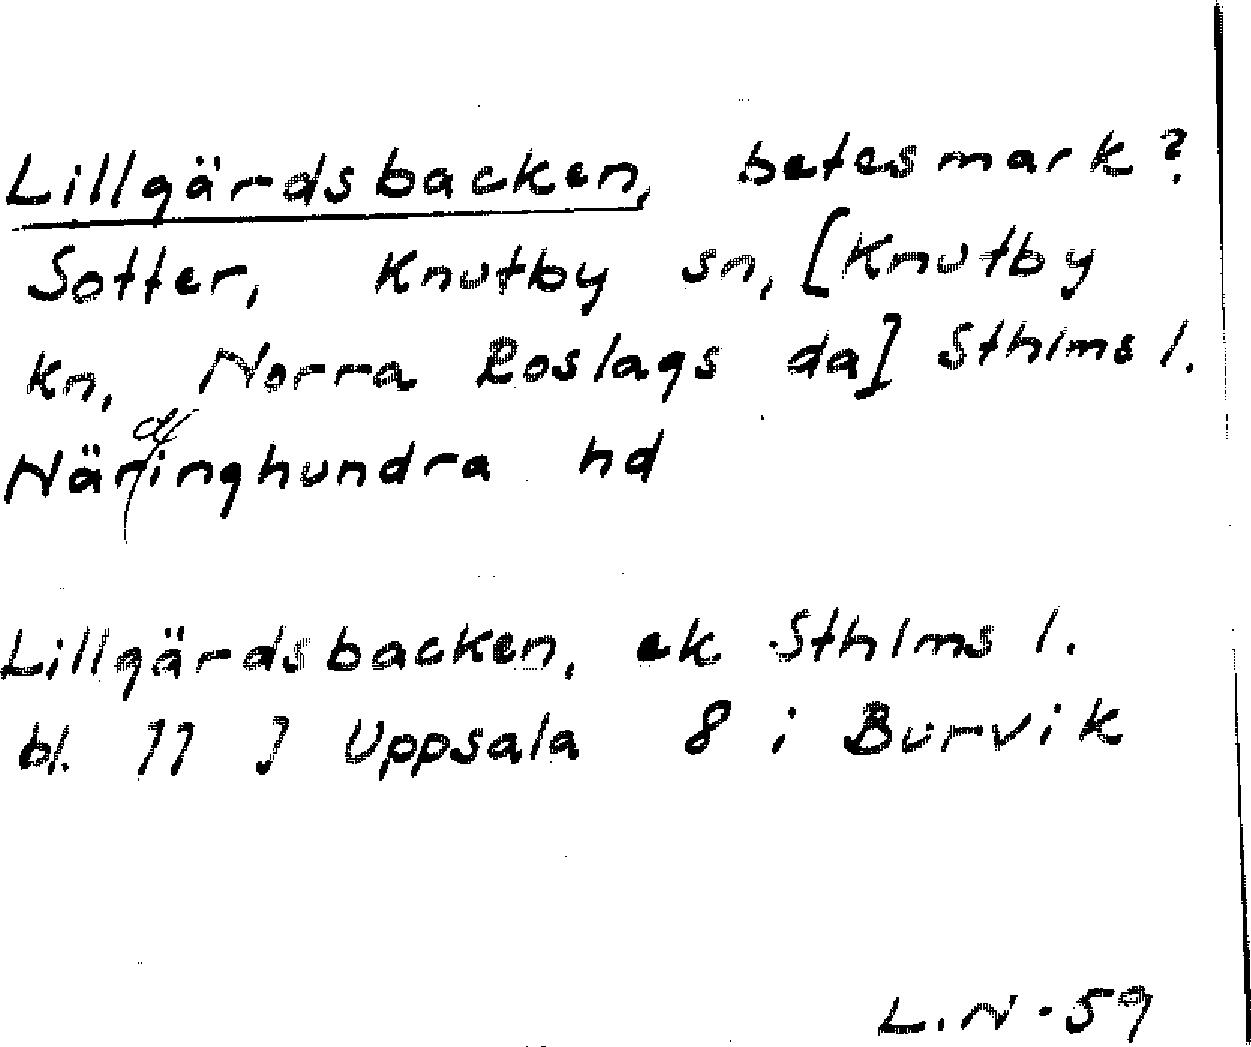 Lillgärdsbacken, betesmark?
Sotter, Knutby sn, [Knutby
kn, Norra Roslags da] Sthlms l.
Närdinghundra hd
Lillgärdsbacken, ek Sthlms l.
bl. 77 J Uppsala 8 i Burvik
L.N-59